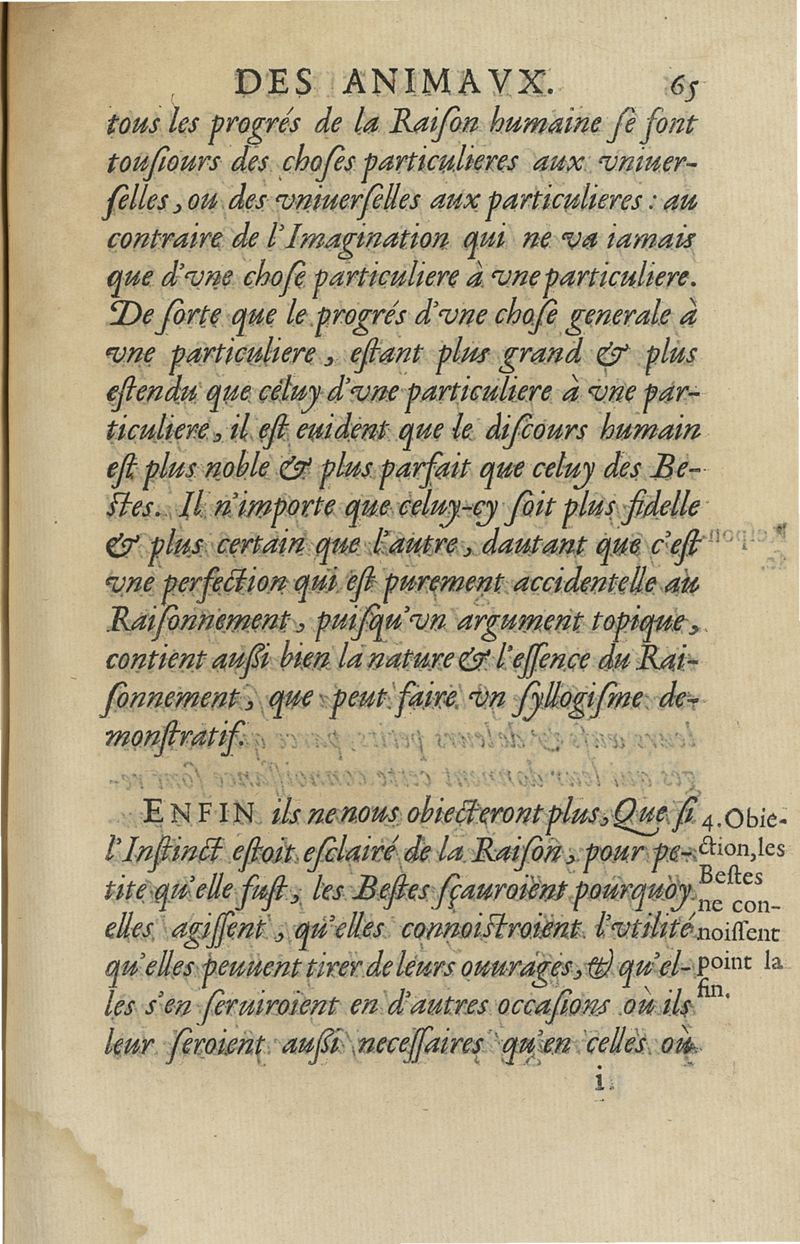 DES ANIMAVX. 65
tous les progrés de la Raiſon humaine ſe font
touſiours des choſes particulieres aux vniuer-
ſelles, ou des vniuerſelles aux particulieres : au
contraire de l'Imagination qui ne va iamais
que d'vne choſe particuliere à vne particuliere.
De ſorte que le progrés d'vne choſe generale à
vne particuliere, eſtant plus grand & plus
eſtendu que celuy d'vne particuliere à vne par-
ticuliere, il eſt euident que le diſcours humain
eſt plus noble & plus parfait que celuy des Be-
ſtes. Il n'importe que celuy-cy ſoit plus fidelle
& plus certain que l'autre, dautant que c'eſt
vne perfection qui eſt purement accidentelle au
Raiſonnement, puiſqu'vn argument topique,
contient auſſi bien la nature & l'eſſence du Rai-
ſonnement, que peut faire vn ſyllogiſme de-
monſtratif.
ENFIN ils ne nous obiecteront plus, Que ſi
l'Inſtinct eſtoit eſclairé de la Raiſon, pour pe-
tite qu'elle fuſt, les Beſtes ſçauroient pourquoy
elles agiſſent, qu'elles connoiſtroient l'vtilité
qu'elles peuuent tirer de leurs ouurages, & qu'el-
les s'en ſeruiroient en d'autres occaſions où ils
leur ſeroient auſſi neceſſaires qu'en celles où
4. Obie-
ction, les
Beſtes
ne con-
noiſſent
point la
fin.
i